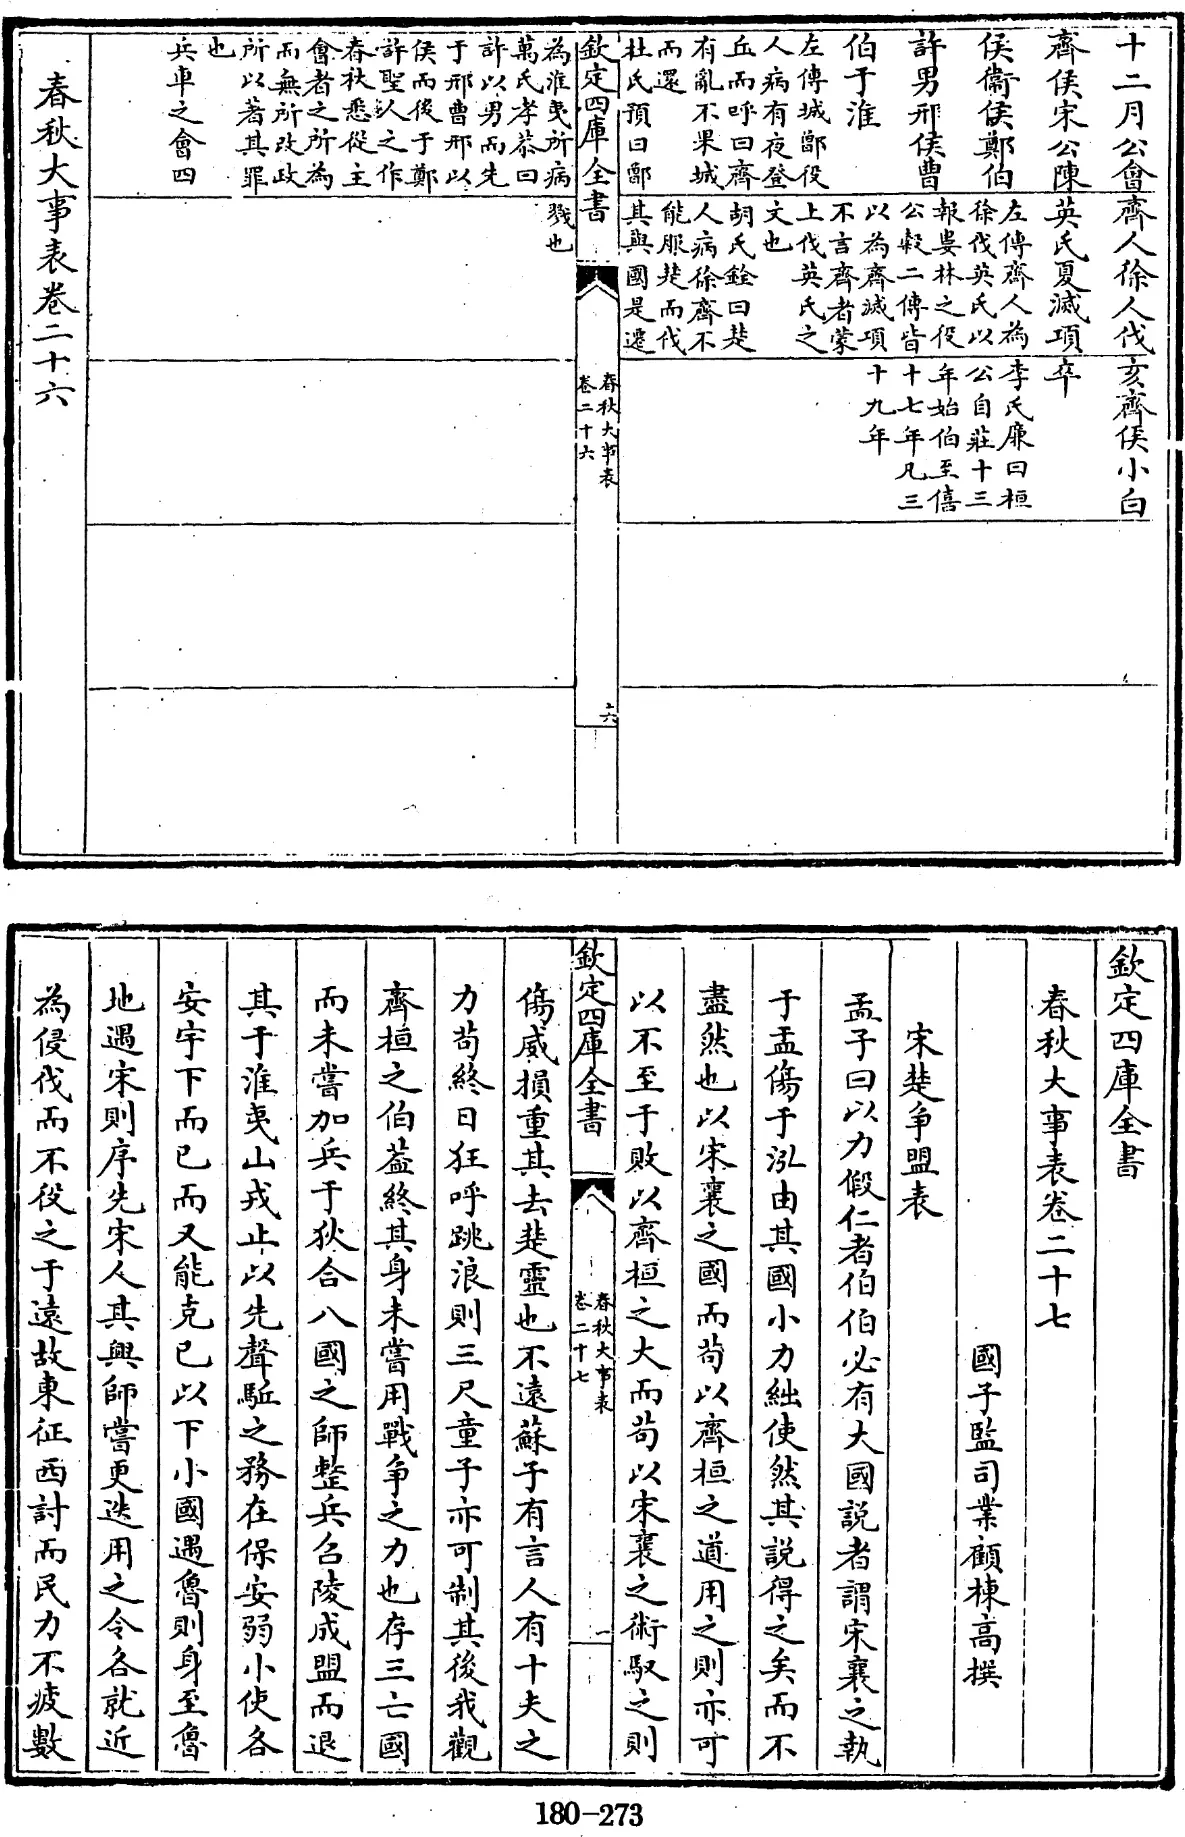 十二月公會
齊侯宋公陳
侯衞侯鄭伯
許男邢侯曹
伯于淮
左傳城鄫役
人病有夜登
丘而呼曰齊
有亂不果城
而還
杜氏預曰鄫
齊人徐人伐
英氏夏滅項
左傳齊人為
徐伐英氏以
報婁林之役
公穀二傳皆
以為齊滅項
不言齊者蒙
上伐英氏之
文也
胡氏銓曰楚
人病徐齊不
能服楚而伐
其與國是遷
亥齊侯小白
卒
李氏廉曰桓
公自莊十三
年始伯至僖
十七年凡三
十九年
欽定四庫全書
春秋大事表
卷二十六
六
為淮夷所病
萬氏孝恭曰
許以男而先
于邢曹邢以
侯而後于鄭
許聖人之作
春秋悉從主
會者之所為
而無所改政
所以著其罪
也
兵車之會四
戮也
春秋大事表卷二十六
欽定四庫全書
春秋大事表卷二十七
國子監司業顧棟高撰
宋楚爭盟表
孟子曰以力假仁者伯伯必有大國説者謂宋襄之執
于盂傷于泓由其國小力絀使然其說得之矣而不
盡然也以宋襄之國而茍以齊桓之道用之則亦可
以不至于敗以齊桓之大而茍以宋襄之術馭之則
欽定四庫全書
春秋大事表
卷二十七
一
傷威損重其去楚靈也不遠蘇子有言人有十夫之
力茍終日狂呼跳浪則三尺童子亦可制其後我觀
齊桓之伯葢終其身未嘗用戰争之力也存三亡國
而未嘗加兵于狄合八國之師整兵召陵成盟而退
其于淮夷山戎止以先聲駈之務在保安弱小使各
安宇下而已而又能克已以下小國遇魯則身至魯
地遇宋則序先宋人其興師嘗更迭用之令各就近
為侵伐而不役之于遠故東征西討而民力不疲數
180-273